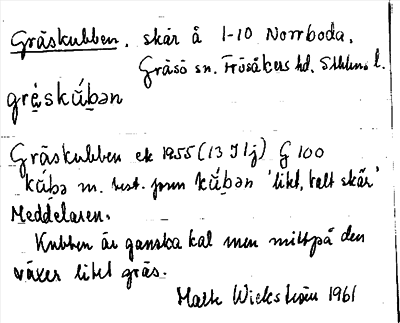 Gräskubben. skär å 1-10 Norrboda,
Gräsö sn. Frösåkers hd. Sthlms l.
grę́skú̄bən
Gräskubben ek 1955 (13 I 1j) G 100
kúbə m. best. form kúbən 'litet, kalt skär'
Meddelaren.
Kubben är ganska kal men mittpå den
växer litet gräs.
Matts Wickström 1961